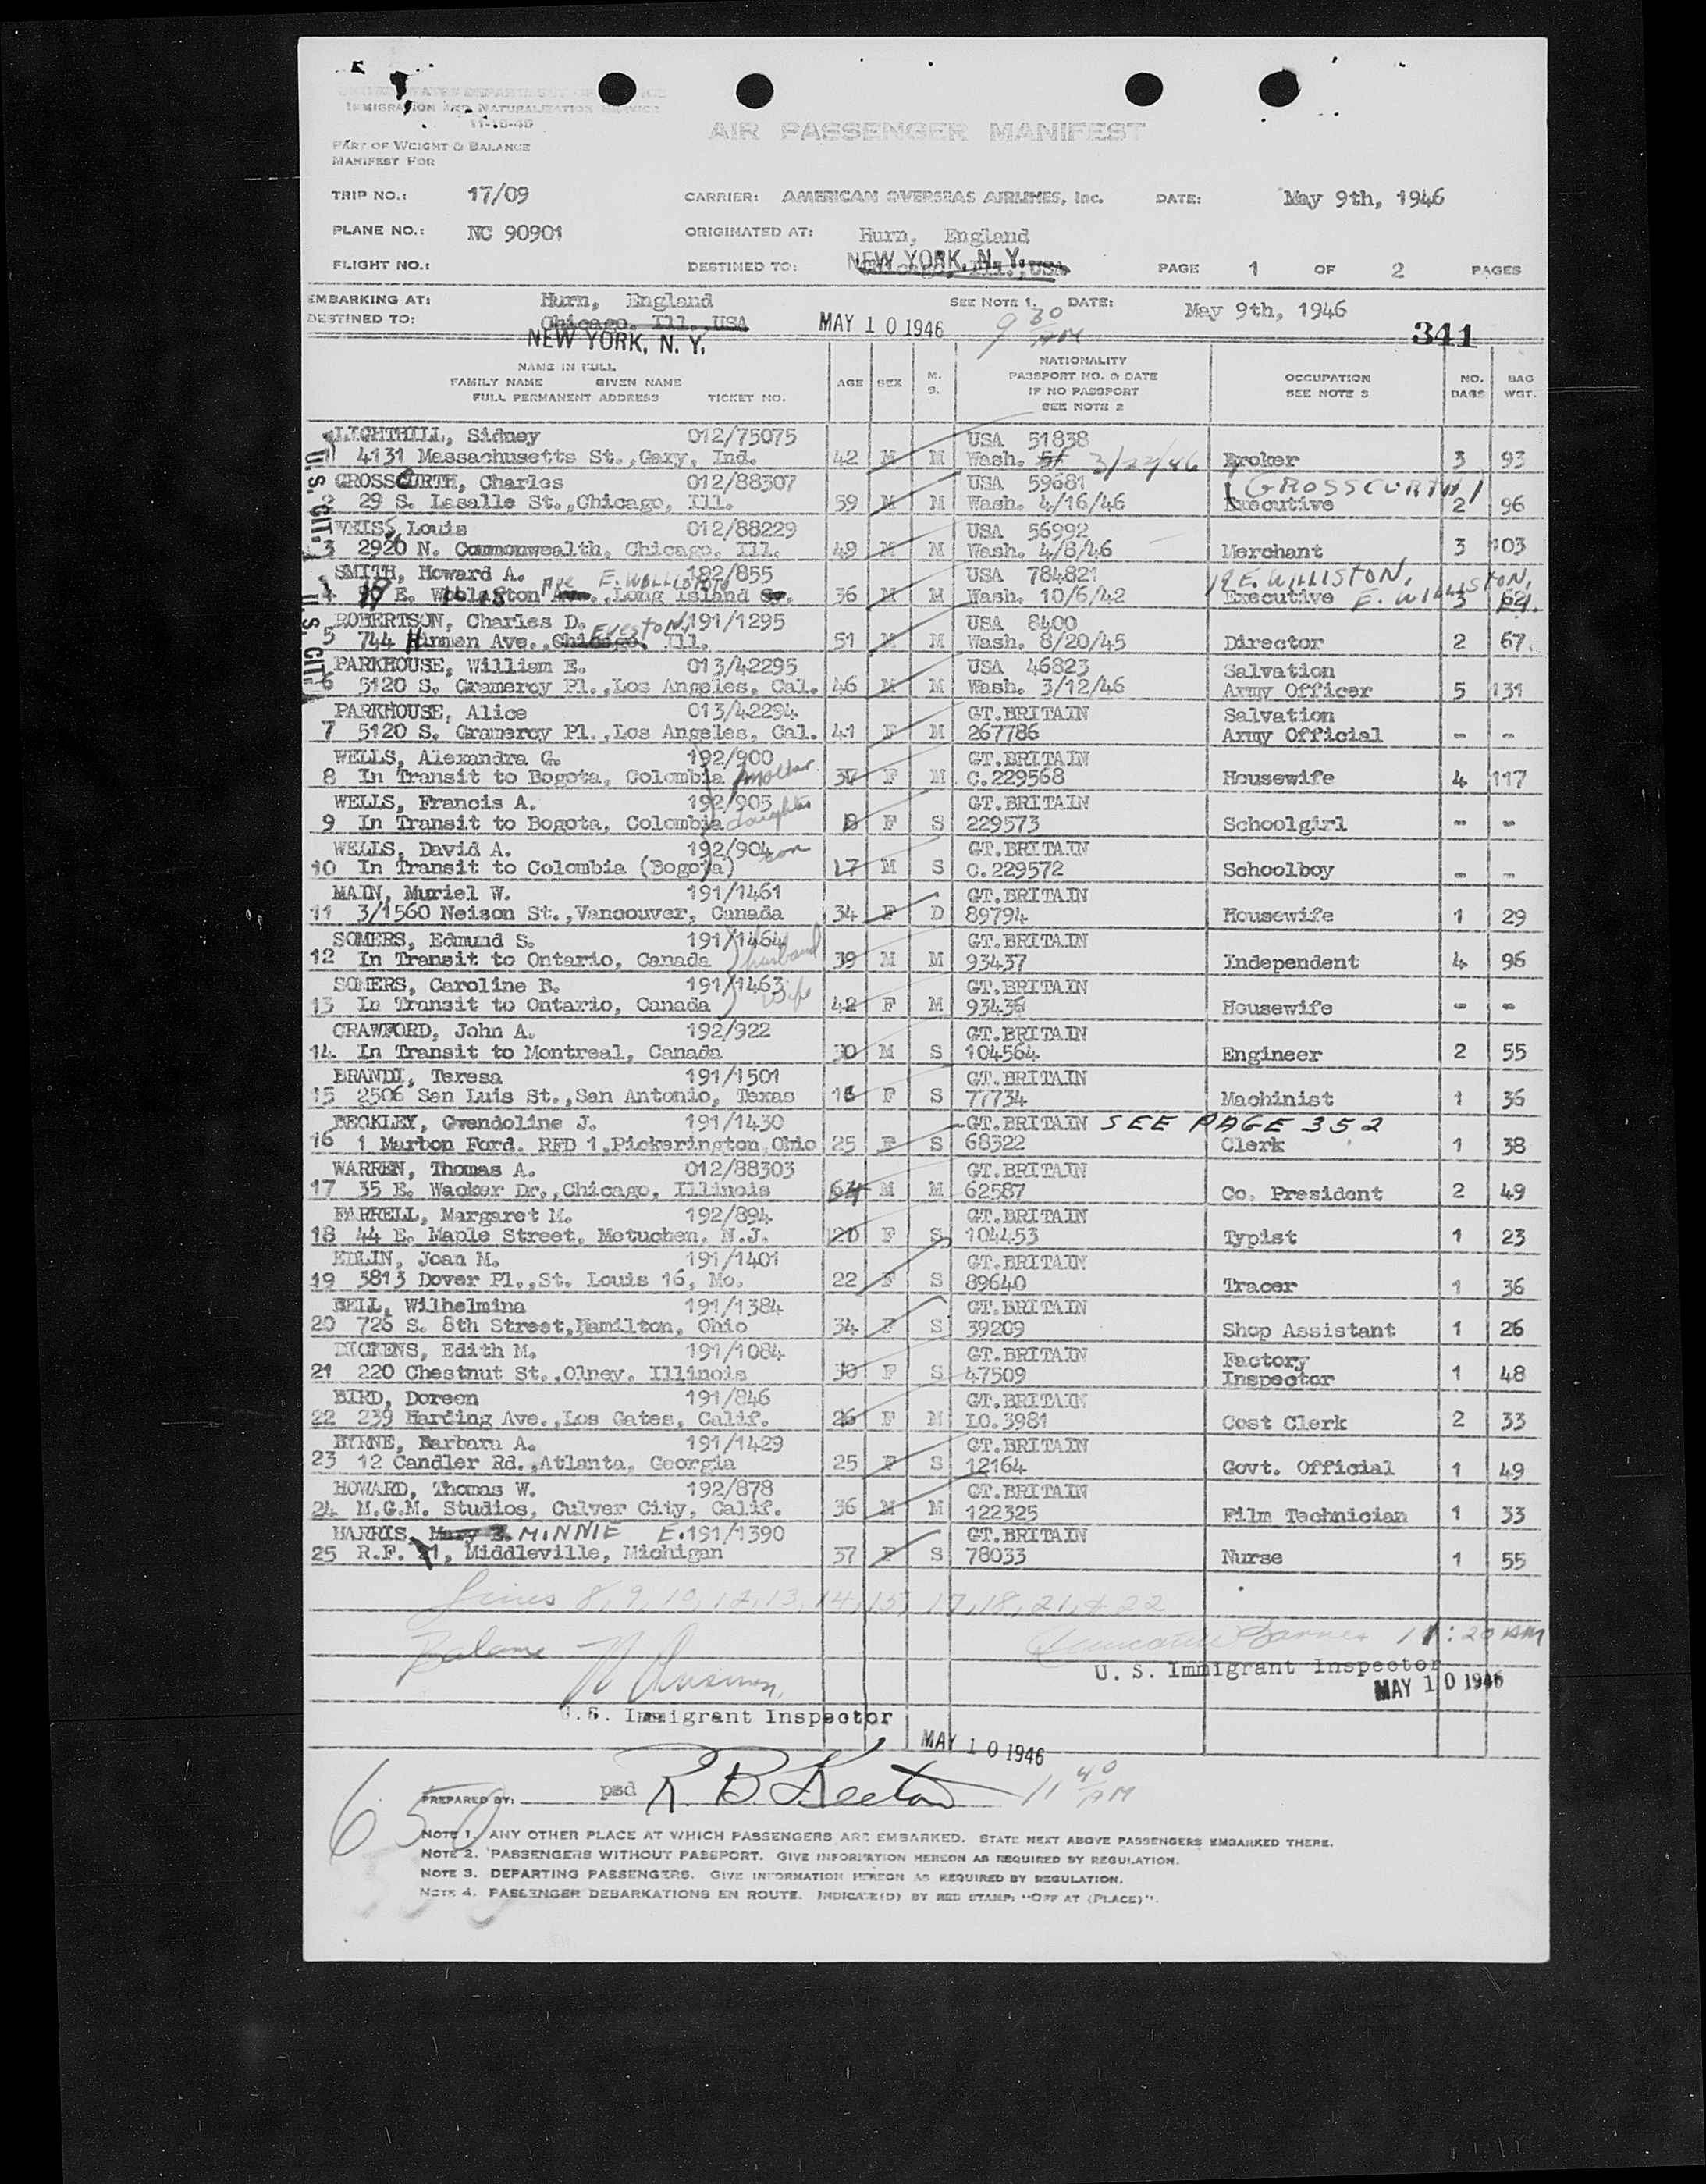 UNITED STATES DEPARTMENT OF JUSTICE
IMMIGRATION AND NATURALIZATION SERVICE
11-15-45
AIR PASSENGER MANIFEST
PART OF WEIGHT & BALANCE
MANIFEST FOR
TRIP NO.: 17/09 CARRIER: AMERICAN OVERSEAS AIRLINES, Inc. DATE: May 9th, 1946
PLANE NO.: NC 90901 ORIGINATED AT: Hurn, England
FLIGHT NO.: DESTINED TO: NEW YORK, N. Y. PAGE 1 OF 2 PAGES
EMBARKING AT: Hurn, England SEE NOTE 1. DATE: May 9th, 1946
DESTINED TO: Chicago, Ill., USA MAY 10 1946 9 30 AM 341
NEW YORK, N. Y.
NAME IN FULL
FAMILY NAME GIVEN NAME
FULL PERMANENT ADDRESS TICKET NO. AGE SEX M. S. NATIONALITY PASSPORT NO. & DATE IF NO PASSPORT SEE NOTE 2 OCCUPATION SEE NOTE 3 NO. BAGS BAG WGT.
U.S. CIT.
LIGHTHILL, Sidney 012/75075 USA 51838
1 4131 Massachusetts St., Gary, Ind. 42 M M Wash. 3/22/46 Broker 3 93
GROSSCURTH, Charles 012/88307 USA 59681 (GROSSCURTH)
2 29 S. Lasalle St., Chicago, Ill. 59 M M Wash. 4/16/46 Executive 2 96
WEISS, Louis 012/88229 USA 56992
3 2920 N. Commonwealth, Chicago, Ill. 49 M M Wash. 4/8/46 Merchant 3 103
SMITH, Howard A. 182/855 USA 784821 19 E. WILLISTON,
4 19 E. Williston Ave., Long Island 36 M M Wash. 10/6/42 Executive E. WILLISTON, 3
U.S. CIT.
ROBERTSON, Charles D. 191/1295 USA 8400
5 744 Hinman Ave., Chicago, Ill. 51 M M Wash. 8/20/45 Director 2 67.
PARKHOUSE, William E. 013/42295 USA 46823 Salvation
6 5120 S. Gramercy Pl., Los Angeles, Cal. 46 M M Wash. 3/12/46 Army Officer 5 131
PARKHOUSE, Alice 013/42294 GT.BRITAIN Salvation
7 5120 S. Gramercy Pl., Los Angeles, Cal. 41 F M 267786 Army Official - -
WELLS, Alexandra G. 192/900 GT.BRITAIN
8 In Transit to Bogota, Colombia mother 37 F M C.229568 Housewife 4 117
WELLS, Francis A. 192/905 GT.BRITAIN
9 In Transit to Bogota, Colombia daughter 8 F S 229573 Schoolgirl - -
WELLS, David A. 192/904 son GT.BRITAIN
10 In Transit to Colombia (Bogota) 17 M S C.229572 Schoolboy - -
MAIN, Muriel W. 191/1461 GT.BRITAIN
11 3/1560 Neison St., Vancouver, Canada 34 F D 89794 Housewife 1 29
SOMERS, Edmund S. 191/1464 husband GT.BRITAIN
12 In Transit to Ontario, Canada 39 M M 93437 Independent 4 96
SOMERS, Caroline B. 191/1463 wife GT.BRITAIN
13 In Transit to Ontario, Canada 42 F M 93436 Housewife - -
CRAWFORD, John A. 192/922 GT.BRITAIN
14 In Transit to Montreal, Canada 30 M S 104564 Engineer 2 55
BRANDI, Teresa 191/1501 GT.BRITAIN
15 2506 San Luis St., San Antonio, Texas 18 F S 77734 Machinist 1 36
BECKLEY, Gwendoline J. 191/1430 GT.BRITAIN SEE PAGE 352
16 1 Marbon Ford. RFD 1, Pickerington, Ohio 25 F S 68322 Clerk 1 38
WARREN, Thomas A. 012/88303 GT.BRITAIN
17 35 E. Wacker Dr., Chicago, Illinois 64 M M 62587 Co. President 2 49
FARRELL, Margaret M. 192/894 GT.BRITAIN
18 44 E. Maple Street, Metuchen, N.J. 20 F S 104453 Typist 1 23
EDLIN, Joan M. 191/1401 GT.BRITAIN
19 5813 Dover Pl., St. Louis 16, Mo. 22 F S 89640 Tracer 1 36
BELL, Wilhelmina 191/1384 GT.BRITAIN
20 726 S. 8th Street, Hamilton, Ohio 34 F S 39209 Shop Assistant 1 26
DICKENS, Edith M. 191/1084 GT.BRITAIN Factory
21 220 Chestnut St., Olney, Illinois 30 F S 47509 Inspector 1 48
BIRD, Doreen 191/846 GT.BRITAIN
22 239 Harding Ave., Los Gates, Calif. 26 F M LO.3981 Cost Clerk 2 33
BYRNE, Barbara A. 191/1429 GT.BRITAIN
23 12 Candler Rd., Atlanta, Georgia 25 F S 12164 Govt. Official 1 49
HOWARD, Thomas W. 192/878 GT.BRITAIN
24 M.G.M. Studios, Culver City, Calif. 36 M M 122325 Film Technician 1 33
HARRIS, MINNIE E. 191/1390 GT.BRITAIN
25 R.F. 1, Middleville, Michigan 37 F S 78033 Nurse 1 55
Lines 8, 9, 10, 12, 13, 14, 15, 17, 18, 21, & 22
Balance 11:20 AM
U. S. Immigrant Inspector
MAY 10 1946
U.S. Immigrant Inspector
MAY 10 1946
650
PREPARED BY: psd R. B. Keeton 11 40 AM
NOTE 1. ANY OTHER PLACE AT WHICH PASSENGERS ARE EMBARKED. STATE NEXT ABOVE PASSENGERS EMBARKED THERE.
NOTE 2. PASSENGERS WITHOUT PASSPORT. GIVE INFORMATION HEREON AS REQUIRED BY REGULATION.
NOTE 3. DEPARTING PASSENGERS. GIVE INFORMATION HEREON AS REQUIRED BY REGULATION.
NOTE 4. PASSENGER DEBARKATIONS EN ROUTE. INDICATE(D) BY RED STAMP: "OFF AT (PLACE)".